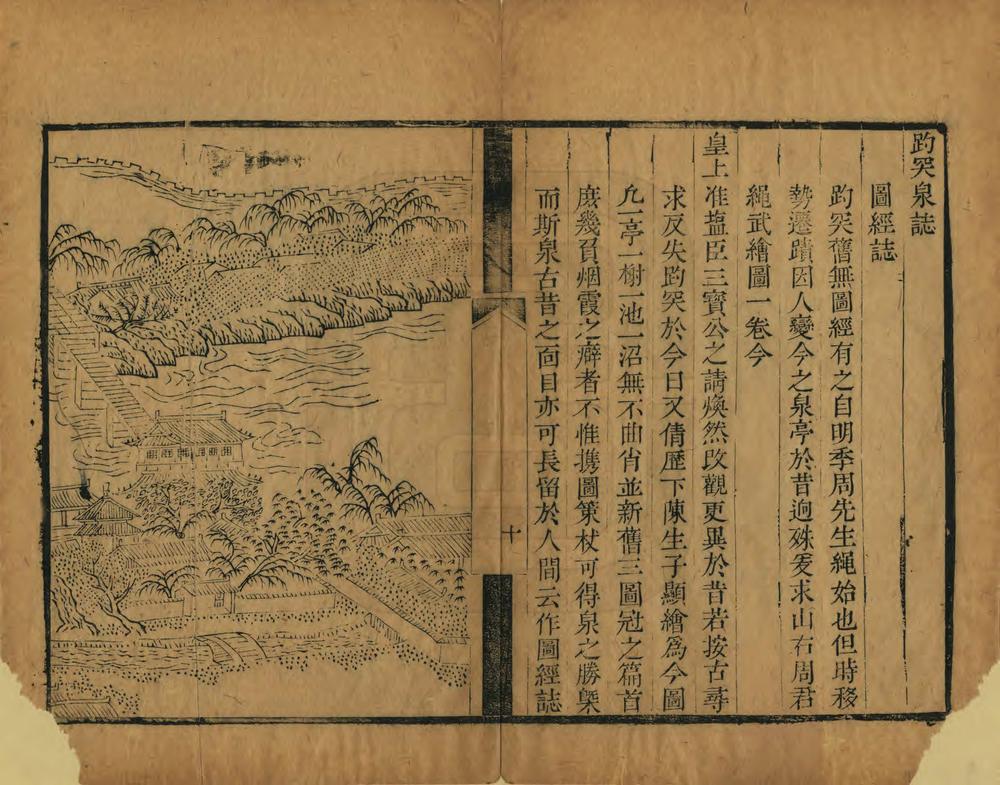 趵突泉誌
圖經誌
趵突舊無圖經有之自明季周先生繩始也但時移
勢遷蹟因人變今之泉亭於昔迥殊爰求山右周君
繩武繪圖一卷今
皇上准塩臣三寶公之請煥然改觀更異於昔若按古尋
求反失趵突於今日又倩歷下陳生子顯繪爲今圖
凡一亭一榭一池一沼無不曲肖並新舊三圖冠之篇首
庻幾負烟霞之癖者不惟携圖策杖可得泉之勝槩
而斯泉古昔之面目亦可長留於人間云作圖經誌
十